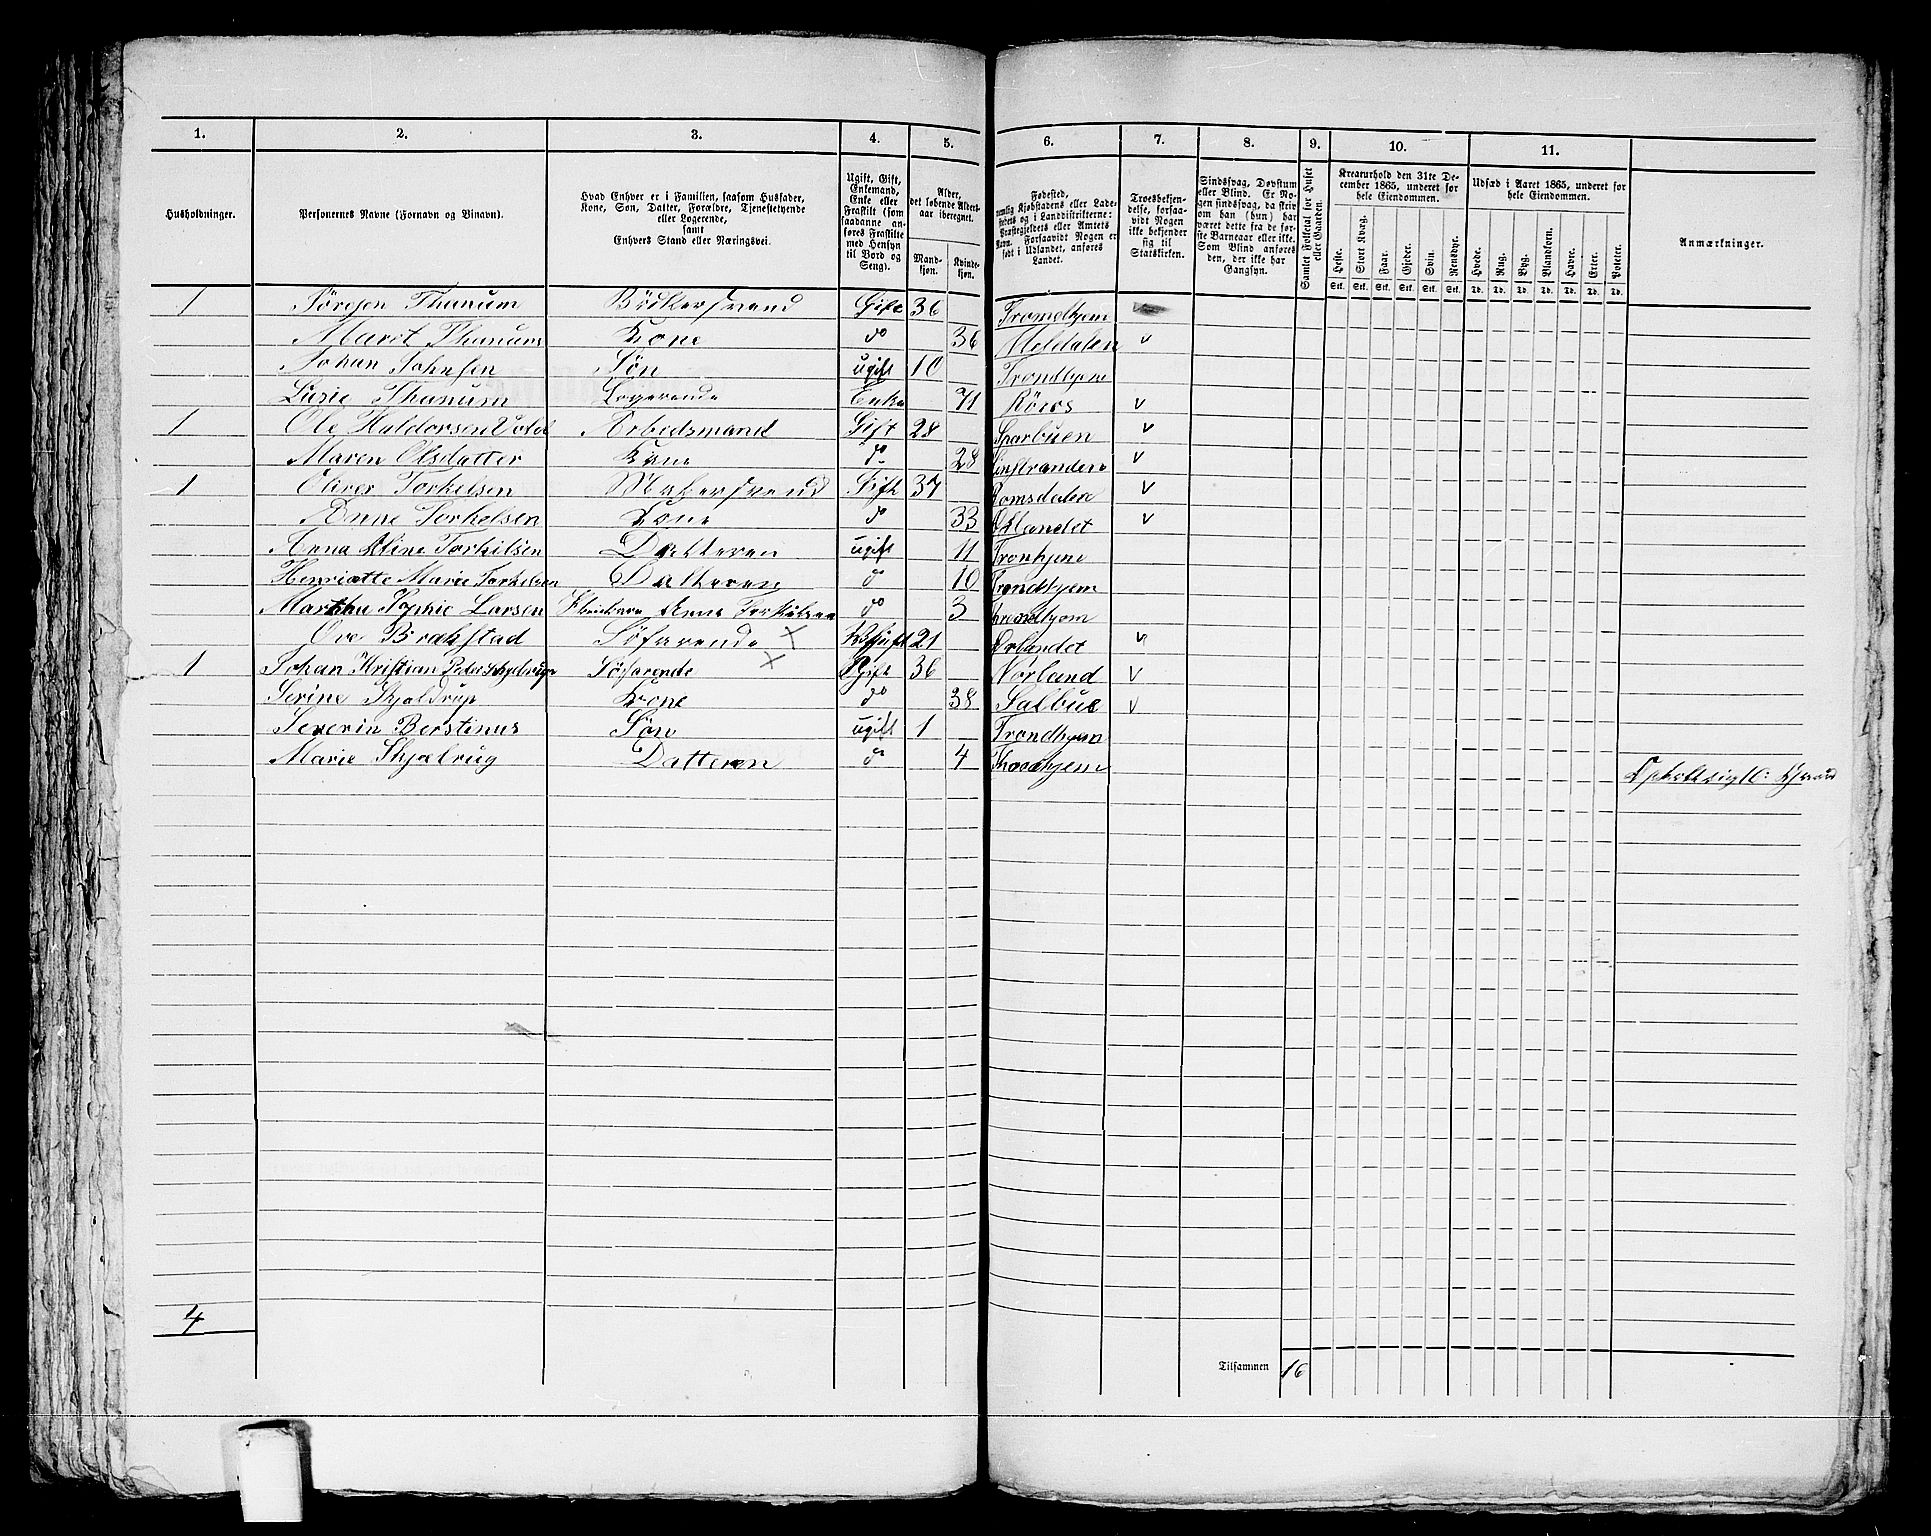 1. 2. 3. 4. 5. 6. 7. 8. 9. 10. 11.
Husholdninger.
Personernes Navne (Fornavn og Binavn).
Hvad Enhver er i Familien, saasom Husfader,
Kone, Søn, Datter, Forældre, Tjenestetyende
eller Logerende,
samt
Enhvers Stand eller Næringsvei.
Ugift, Gift,
Enkemand,
Enke eller
Fraskilt (som
saadanne an-
føres Fraskilte
med Hensyn
til Bord og
Seng).
Alder,
det løbende Alders-
aar iberegnet.
Mand-
kjøn.
Kvinde-
kjøn.
Fødested,
nemlig Kjøbstadens eller Lade-
stedets og i Landdistrikterne:
Præstegjeldets eller Amtets
Navn. Forsaavidt Nogen er
født i Udlandet, anføres
Landet.
Troesbekjen-
delse, forsaa-
vidt Nogen
ikke bekjender
sig til
Statskirken.
Sindssvag, Døvstum
eller Blind. Er No-
gen sindssvag, da skrives
om han (hun) har
været dette fra de før-
ste Barneaar eller ikke.
Som Blind anføres
den, der ikke har
Gangsyn.
Samlet Folketal for Huset
eller Gaarden.
Kreaturhold den 31te De-
cember 1865, underet for
hele Eiendommen.
Heste. Stort Kvæg. Faar. Gjeder. Svin. Rensdyr.
Stk. Stk. Stk. Stk. Stk. Stk.
Udsæd i Aaret 1865, underet for
hele Eiendommen.
Hvede. Rug. Byg. Blandkorn. Havre. Erter. Poteter.
Td. Td. Td. Td. Td. Td. Td.
Anmærkninger.
1 Jörgen Thunum Bödkersvend Gift 36 Trondhjem
Marit Thunum Kone do 36 Meldalen v
Johan Johnsen Søn ugift 10 Trondhjem
Lusie Thunum Logerende Enke 71 Röros v
1 Ole Haldorsen Vold Arbedsmand Gift 28 Sparbuen v
Maren Olsdatter Kone do 28 v
1 Oliver Torkelsen Gift 37 Romsdalen v
Anne Torkelsen Kone do 33 v
Anna Stine Torkilsen Datteren ugift 11 Tronhjem
Henriatte Marie Torkelsen Datteren do 10 Trondhjem
Martha Sophie Larsen do 3 Trondhjem
Ove Brakstad Söfarende × 21 v
1 Johan Kristian Söfarende × Gift 36 Norland v
Serine Skjeldrup Kone do 38 v
Severin Berstinus Søn ugift 1 Trondhjem
Marie Skjelrug Datteren do 4
4
Tilsammen 16